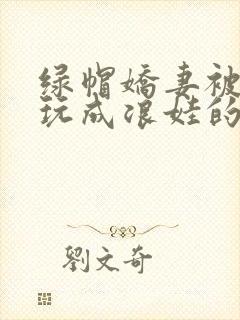 绿帽嬌妻被
玩成浪娃的
劉文奇